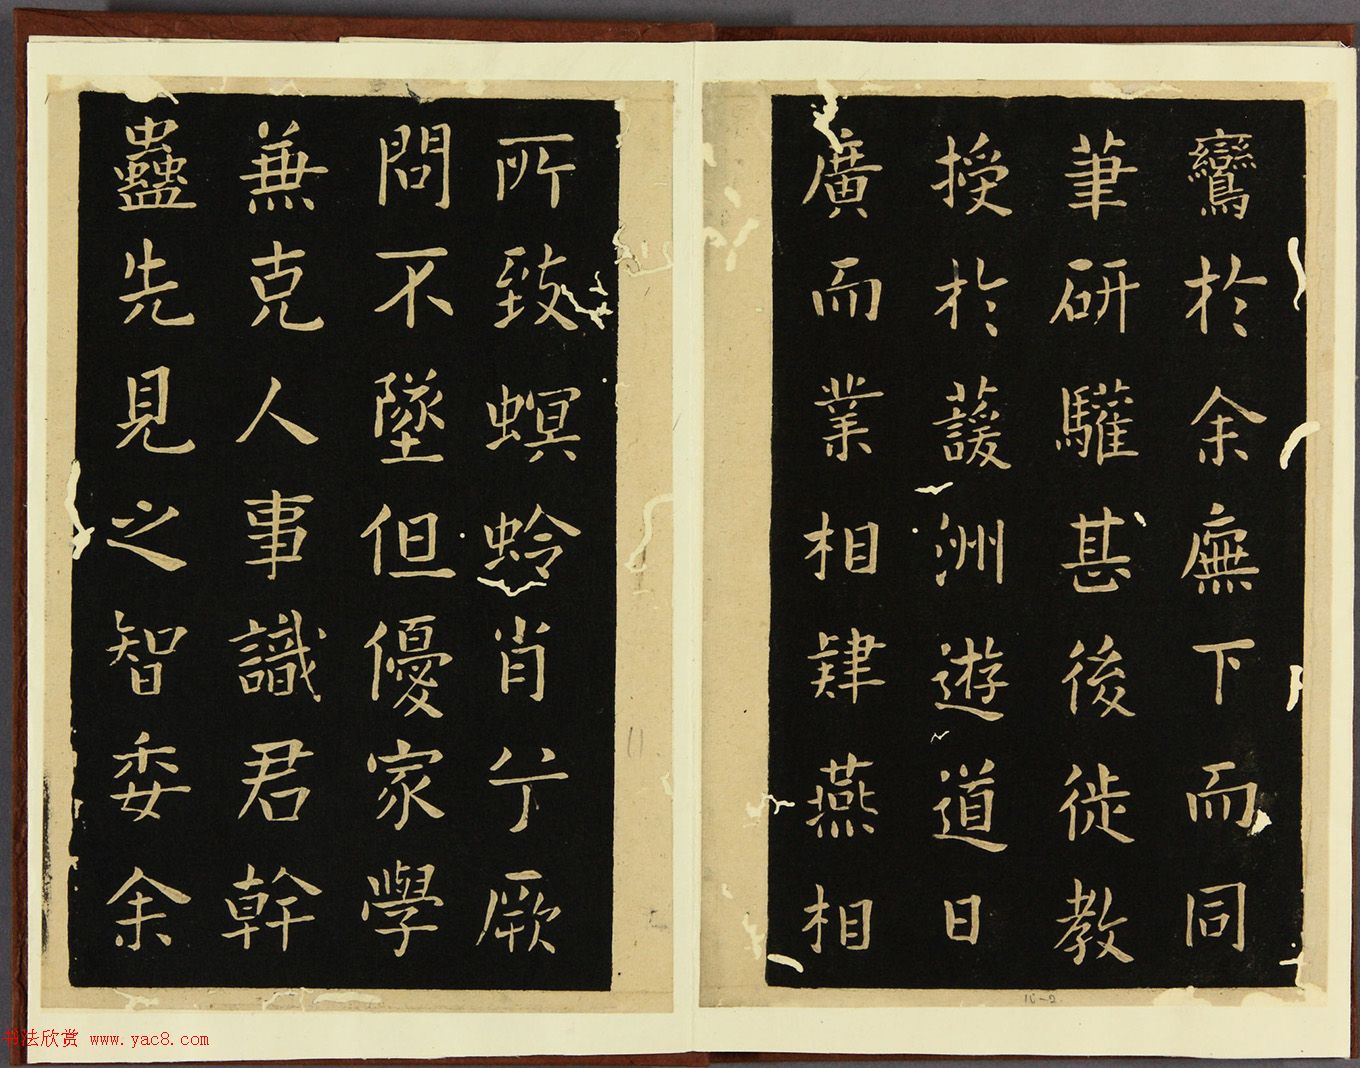 鸞於余廡下而同
筆研驩甚後徙教
授於蘐洲遊道日
廣而業相肄燕相
所致螟蛉肖兮厥
問不墜但優家學
兼克人事識君幹
蠱先見之智委余
书法欣赏 www.yac8.com
10-2